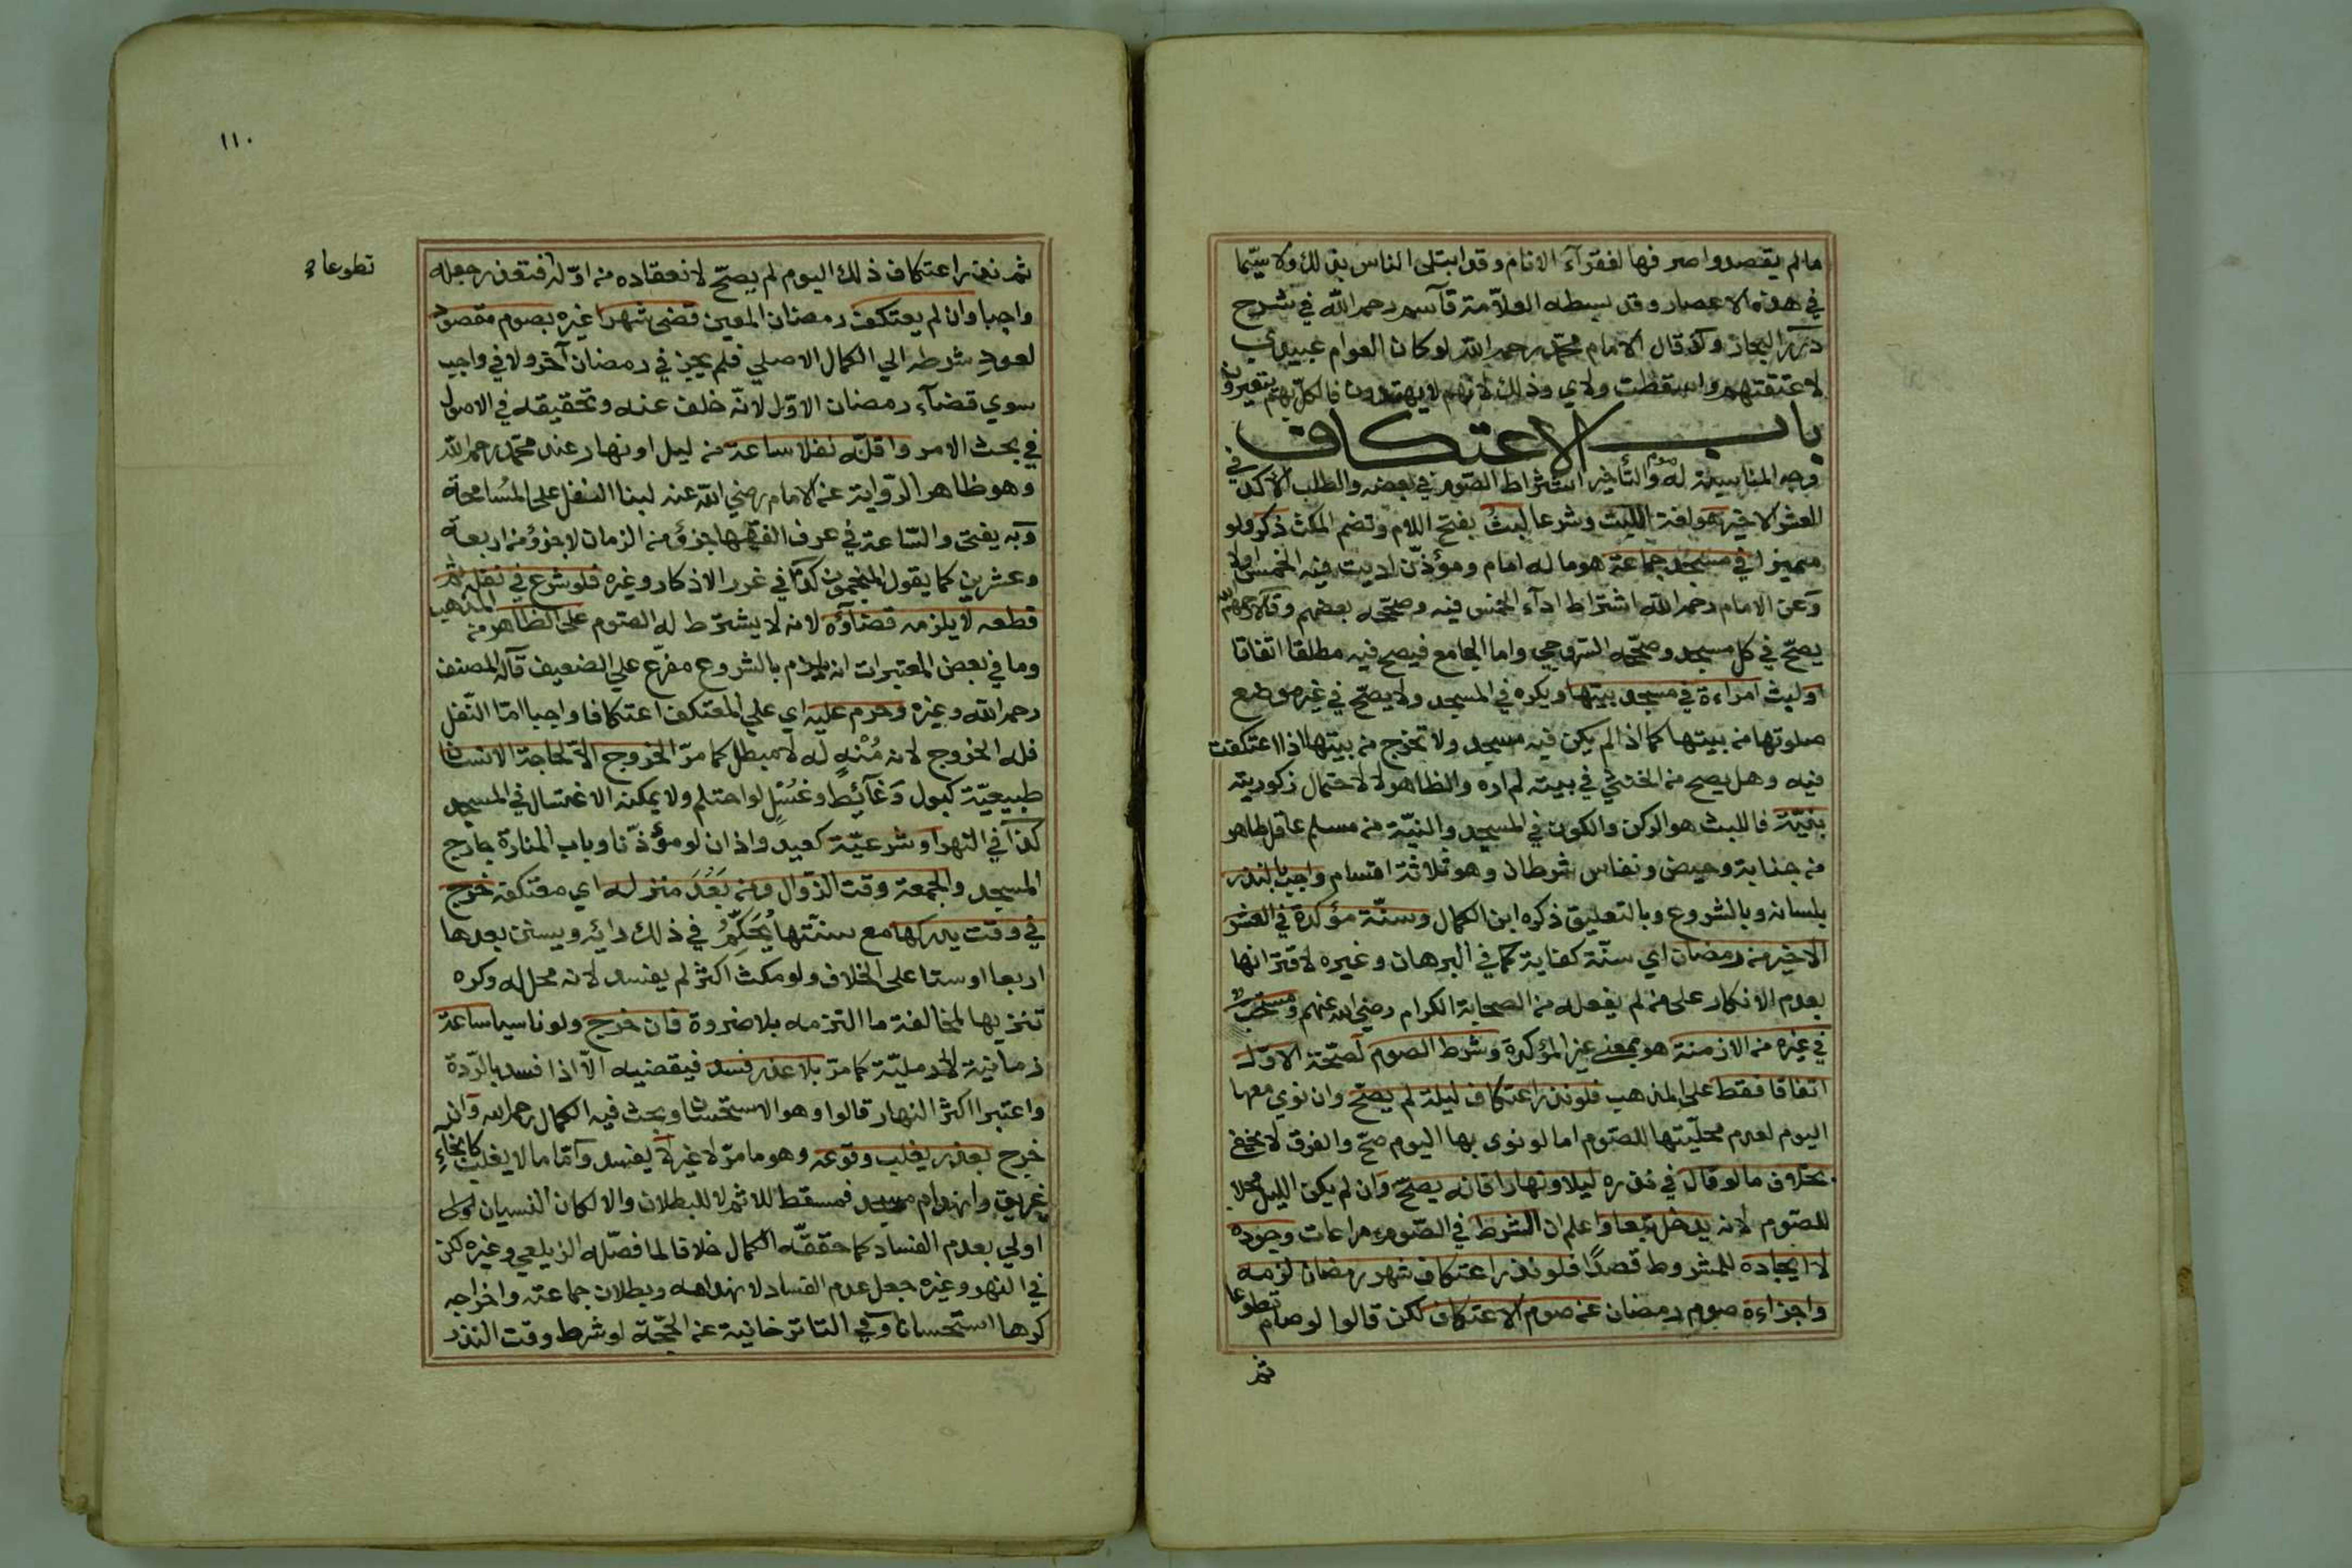 مالم يقصدوا صرفها لفقرآء الانام وقد ابتلى الناس بذلك ولا سيّما
في هذه الاعصار وقد بسطه العلاّمة قاسم رحمه الله في شرح
درر البحار ولذا قال الامام محمّد رحمه الله لو كان العوام عبيدي
لاعتقتهم واسقطت ولاي وذلك لانهم لا يهتدون فالكل بهم يتغيرون
باب الاعتكاف
وجه المناسبة له والتأخير اشتراط الصّوم في بعضه والطلب الآكد في
العشر الاخير هو لغة اللبث وشرعا لبث بفتح اللام وتضم المكث ذكر ولو
مميزا في مسجد جماعة هو ما له امام ومؤذّن اديت فيه الخمس اولا
وعن الامام رحمه الله اشتراط ادآء الخمس فيه وصحّحه بعضهم وقالا رحمهم الله
يصحّ في كل مسجد وصحّحه السروجي واما الجامع فيصح فيه مطلقا اتفاقا
او لبث امراءة في مسجد بيتها ويكره في المسجد ولا يصحّ في غير موضع
صلوتها من بيتها كما اذا لم يكن فيه مسجد ولا تخرج من بيتها اذا اعتكفت
فيه وهل يصح من الخنثي في بيته لم اره والظاهر لا لاحتمال ذكوريته
بنيّة فاللبث هو الركن والكون في المسجد والنيّة من مسلم عاقل طاهر
من جنابة وحيض ونفاس شرطان وهو ثلاثة اقسام واجب بالنذر
بلسانه وبالشروع وبالتعليق ذكره ابن الكمال وسنّة مؤكدة في العشر
الاخير من رمضان اي سنّة كفاية كما في البرهان وغيره لاقترانها
بعدم الانكار على من لم يفعله من الصحابة الكرام رضي الله عنهم ومستحب
في غيره من الازمنة هو بمعني غير المؤكدة وشرط الصوم لصحّة الاوّل
اتفاقا فقط على المذهب فلو نذر اعتكاف ليلة لم يصحّ وان نوي معها
اليوم لعدم محلّيتها للصّوم اما لو نوى بها اليوم صحّ والفرق لا يخفي
بخلاف ما لو قال في نذره ليلا ونهارا فانه يصحّ وان لم يكن الليل محلا
للصّوم لانه يدخل تبعا واعلم ان الشرط في الصّوم مراعات وجوده
لا ايجاده للمشروط قصدًا فلو نذر اعتكاف شهر رمضان لزمه
واجزاءه صوم رمضان عن صوم الاعتكاف لكن قالوا لو صام تطوعا
ثم
١١٠
تطوعا
ثم نذر اعتكاف ذلك اليوم لم يصحّ لانعقاده من اوّله فتعذر جعله
واجبا وان لم يعتكف رمضان المعين قضى شهرا غيره بصوم مقصود
لعود شرطه الي الكمال الاصلي فلم يجز في رمضان آخر ولا في واجب
سوي قضآء رمضان الاوّل لانّه خلف عنه وتحقيقه في الاصول
في بحث الامر واقلّه نفلا ساعة من ليل او نهار عند محمّد رحمه الله
وهو ظاهر الرّواية عن الامام رضي الله عنه لبنا النفل على المسُامحة
وبه يفتى والسّاعة في عرف الفقهآء جزؤ من الزمان لا جزؤ من اربعة
وعشرين كما يقول المنجمون كذا في غرر الاذكار وغيره فلو شرع في نفله ثم
قطعه لا يلزمه قضآؤه لانه لا يشترط له الصّوم على الظاهر من المذهب
وما في بعض المعتبرات انه يلزم بالشروع مفرّع علي الضعيف قاله المصنف
رحمه الله وغيره وحرم عليه اي علي المعتكف اعتكافا واجبا امّا النّفل
فله الخروج لانه مُنْهٍ له لا مبطل كما مرّ الخروج الاّ لحاجة الانسان
طبيعيّة كبول وغآئط وغُسْلٍ لو احتلم ولا يمكنه الاغتسال في المسجد
كذا في النهر او شرعيّة كعيد واذان لو مؤذّنا وباب المنارة خارج
المسجد والجمعة وقت الزّوال ومن بَعُدَ منزله اي معتكفه خرج
في وقت يدركها مع سنّتها يُحَكِّمُ في ذلك رائه ويستن بعدها
اربعا او ستا على الخلاف ولو مكث اكثر لم يفسد لانه محل له وكره
تنزيها لمخالفة ما التزمه بلا ضروة فان خرج ولو ناسيا ساعة
زمانية لا رمليّة كما مرّ بلا عذر فسد فيقضيه الاّ اذا فسد بالرّدة
واعتبرا اكثر النهار قالوا وهو الاستحسان وبحث فيه الكمال رحمه الله وان
خرج بعذر يغلب وقوعه وهو ما مرّ لا غير لا يفسد وامّا ما لا يغلب كانجآء
غريق وانهدام مسجد فمسقط للاثم لا للبطلان والا لكان النسيان
اولي بعدم الفساد كما حققّه الكمال خلافا لما فصّله الزيلعي وغيره لكن
في النهر وغيره جعل عدم الفساد لانهدامه وبطلان جماعته واخراجه
كرها استحسانا وفي التاترخانية عن الحجّة لو شرط وقت النذر